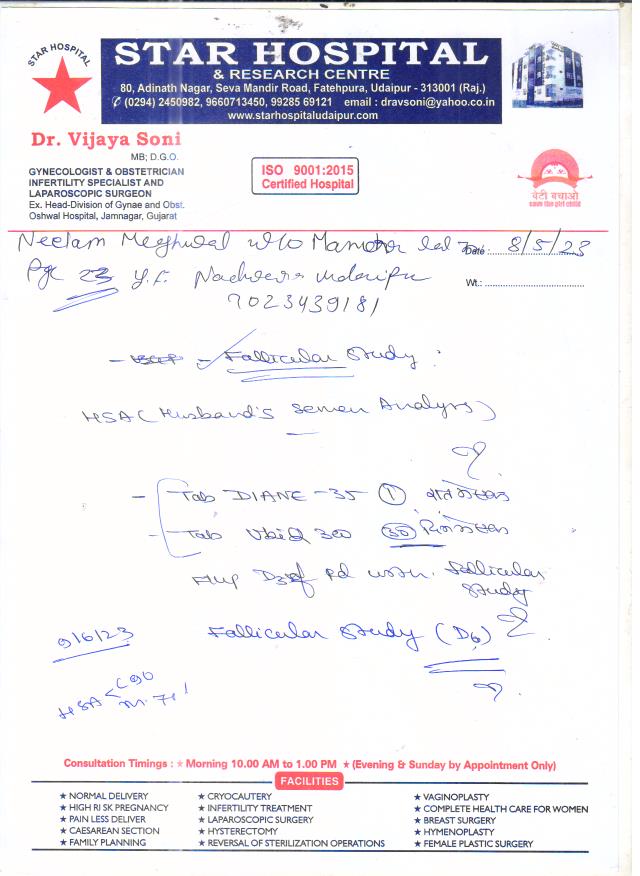 STAR HOSPITAL
STAR HOSPITAL
& RESEARCH CENTRE
80, Adinath Nagar, Seva Mandir Road, Fatehpura, Udaipur - 313001 (Raj.)
✆ (0294) 2450982, 9660713450, 99285 69121 email : dravsoni@yahoo.co.in
www.starhospitaludaipur.com
Dr. Vijaya Soni
MB; D.G.O.
GYNECOLOGIST & OBSTETRICIAN
INFERTILITY SPECIALIST AND
LAPAROSCOPIC SURGEON
Ex. Head-Division of Gynae and Obst.
Oshwal Hospital, Jamnagar, Gujarat
ISO 9001:2015
Certified Hospital
बेटी बचाओ
Neelam Meghwal w/o Date : 8/5/23
Age 23 Y.F.
Wt.:
7023439181
Follicular Study
HSA (Husband's Semen Analysis)
- Tab DIANE-35 ①
- Tab UbiQ 300 ㉚
D3 of Pd Follicular
Study
9/6/23 Follicular Study (D6)
HSA
Consultation Timings : ★ Morning 10.00 AM to 1.00 PM ★ (Evening & Sunday by Appointment Only)
FACILITIES
★ NORMAL DELIVERY ★ CRYOCAUTERY ★ VAGINOPLASTY
★ HIGH RI SK PREGNANCY ★ INFERTILITY TREATMENT ★ COMPLETE HEALTH CARE FOR WOMEN
★ PAIN LESS DELIVER ★ LAPAROSCOPIC SURGERY ★ BREAST SURGERY
★ CAESAREAN SECTION ★ HYSTERECTOMY ★ HYMENOPLASTY
★ FAMILY PLANNING ★ REVERSAL OF STERILIZATION OPERATIONS ★ FEMALE PLASTIC SURGERY